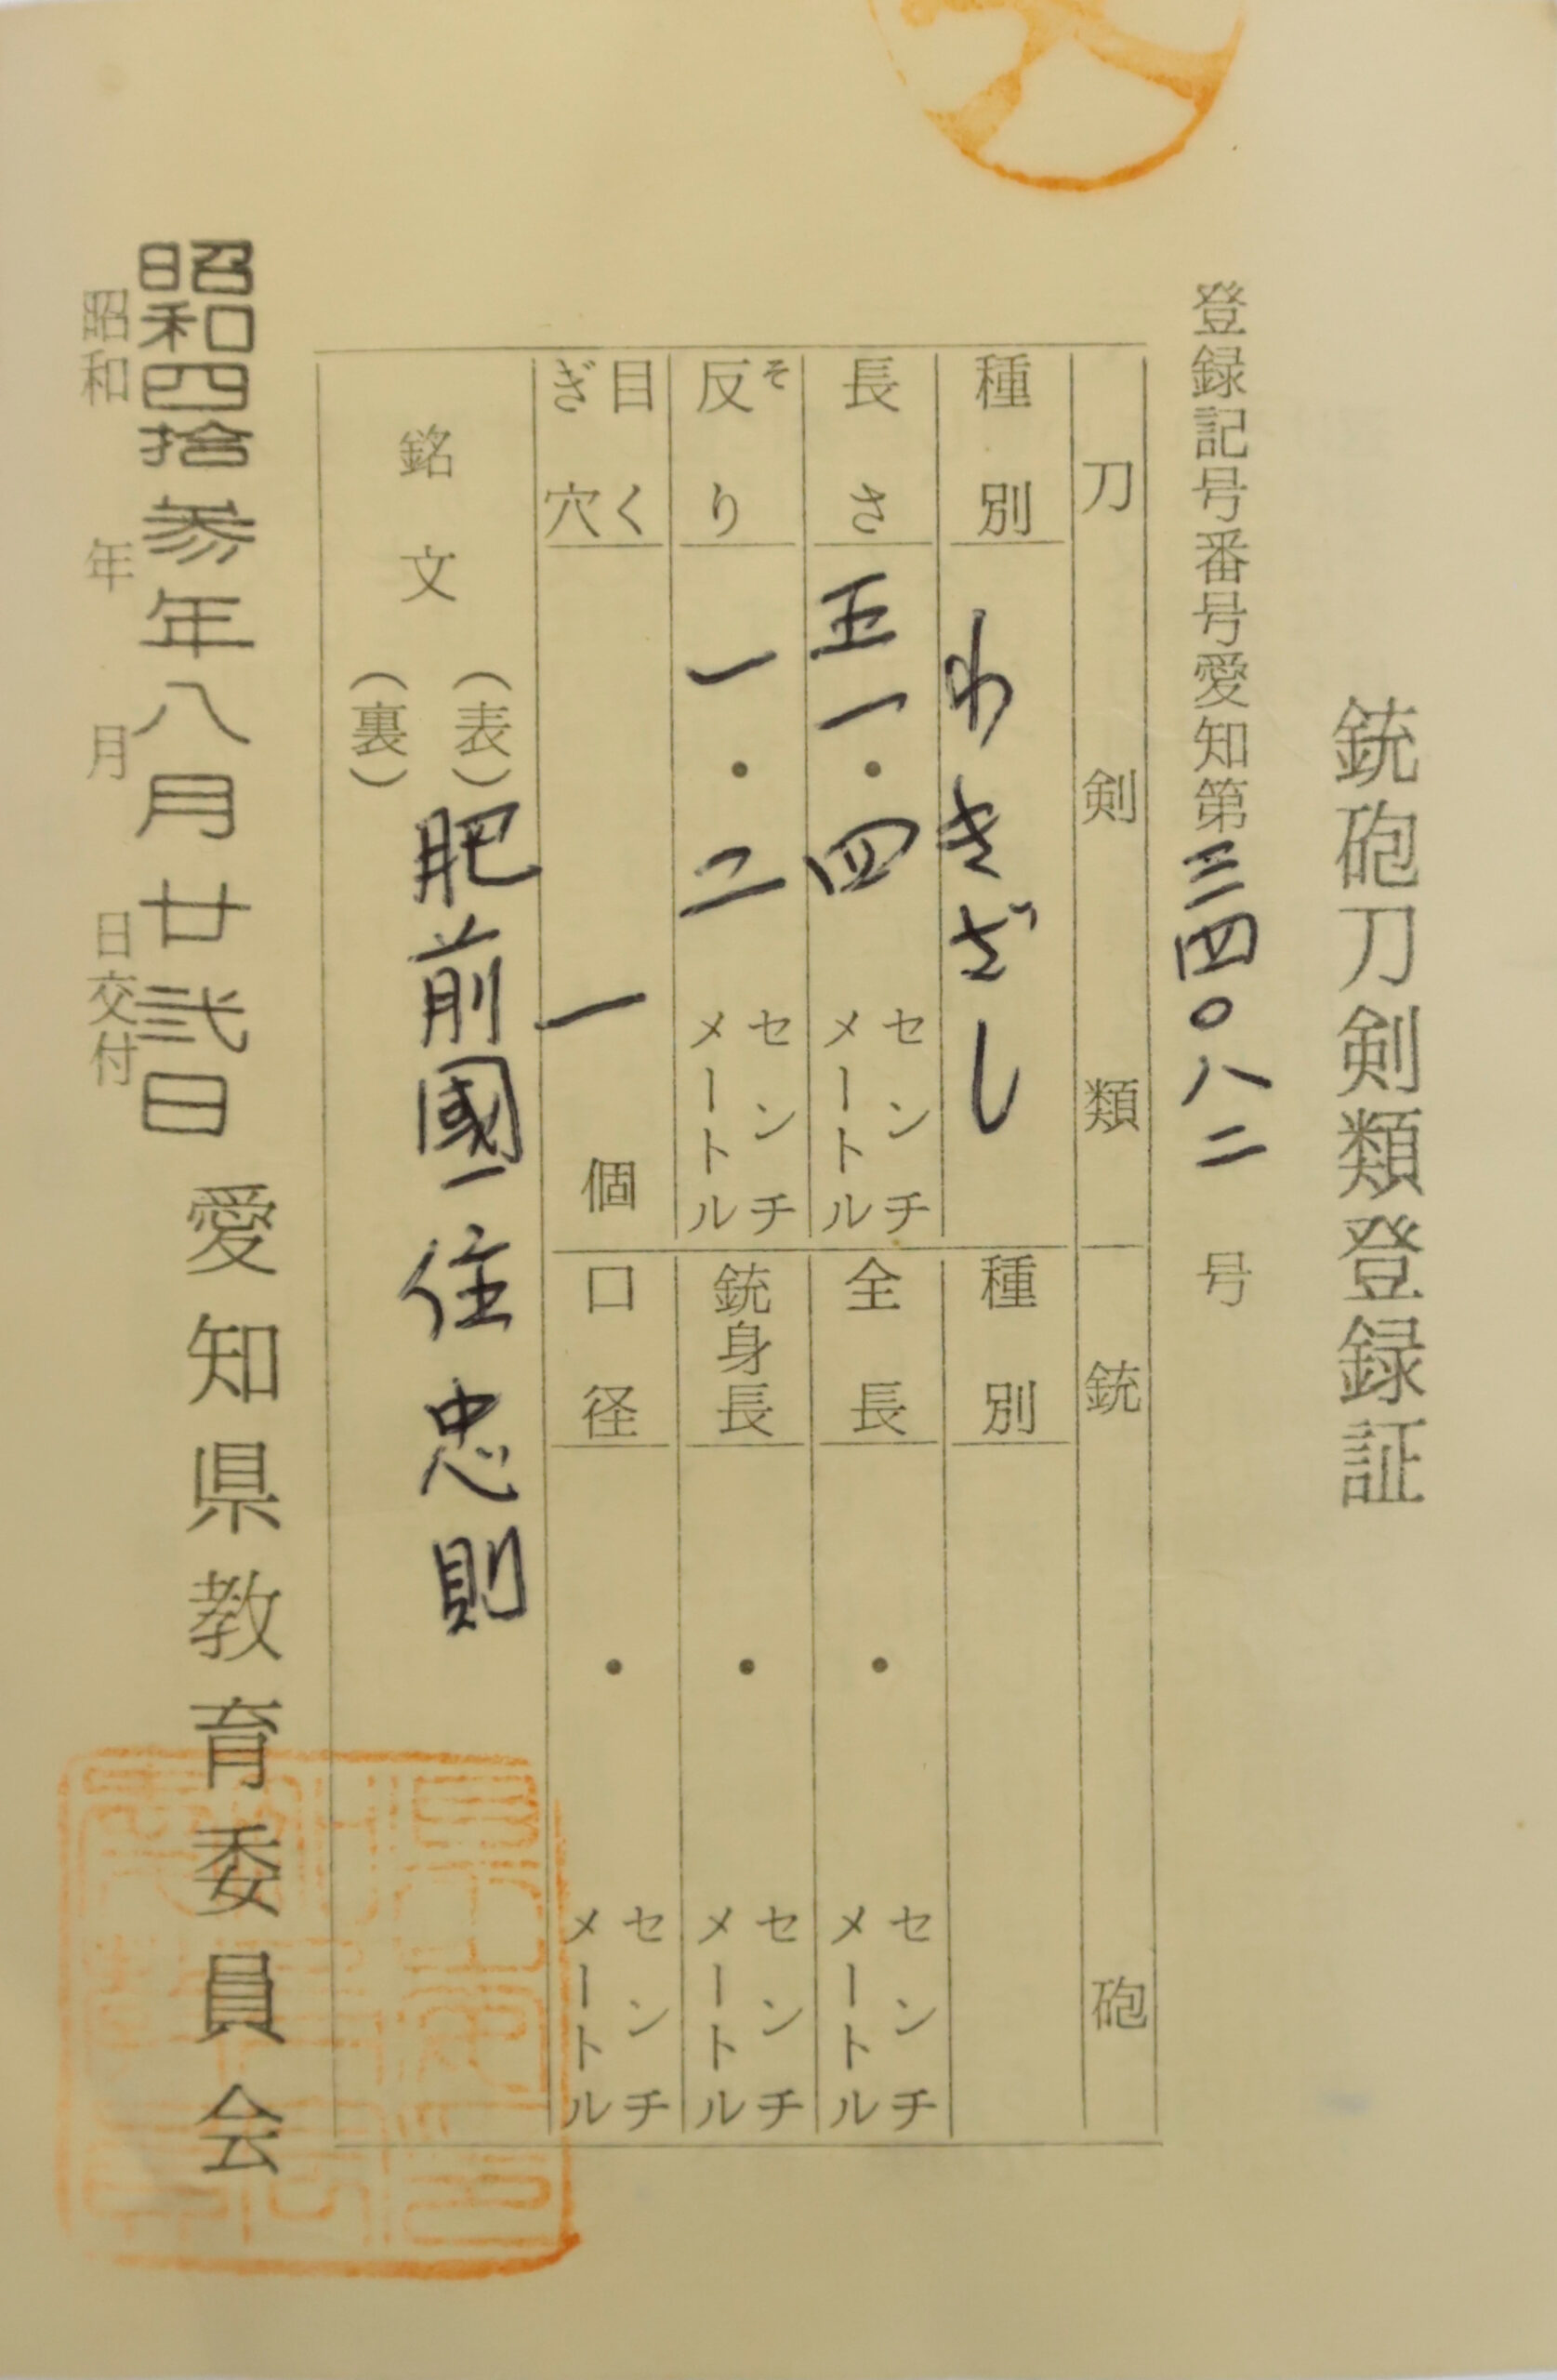 銃砲刀剣類登録証
登録記号番号愛知第三四〇八二号
刀剣類
種別 わきざし
長さ 五一・四 センチメートル
反り そ 一・二 センチメートル
目くぎ穴 一 個
銃砲
種別
全長 ・ センチメートル
銃身長 ・ センチメートル
口径 ・ センチメートル
銘文
(表) 肥前國住忠則
(裏)
昭和四拾参年八月廿弐日
昭和 年 月 日交付
愛知県教育委員会